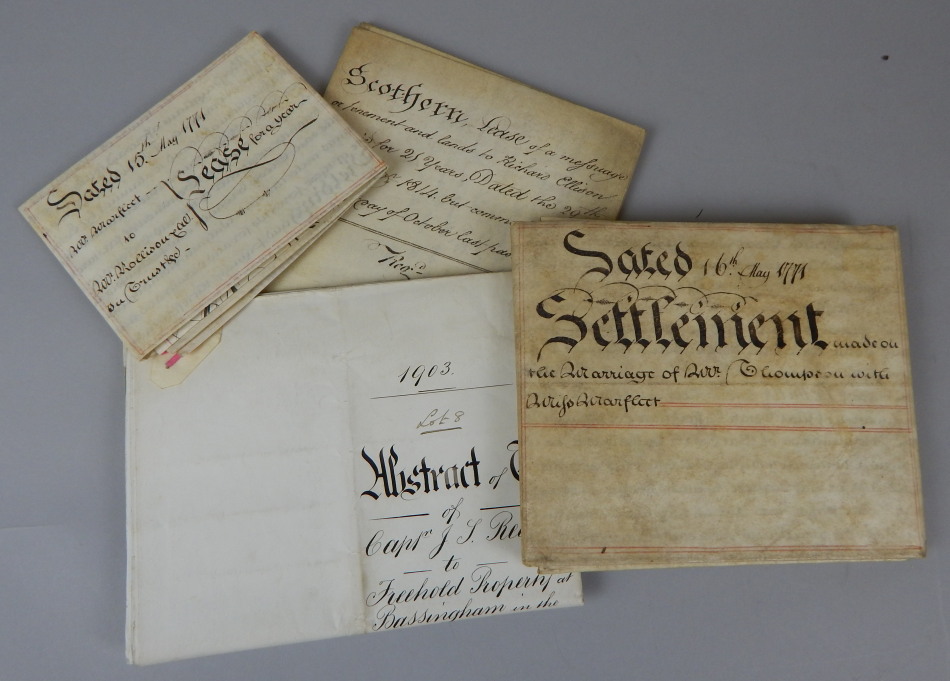 Dated 15th May 1771
Mr. Marfleet
to
Mr. Rollison & al
on Trustees
Lease for a year
Scothern, Lease of a messuage
or tenement and lands to Richard Ellison
for 21 Years, Dated the 29th
1814. but comm
Day of October last pas
Reg.d
Dated 16th May 1771
Settlement made on
the Marriage of Mr. Thompson with
Miss Marfleet
1903.
Lot 8
Abstract of T
of
Captn J. S. Re
to
Freehold Property at
Bassingham in the